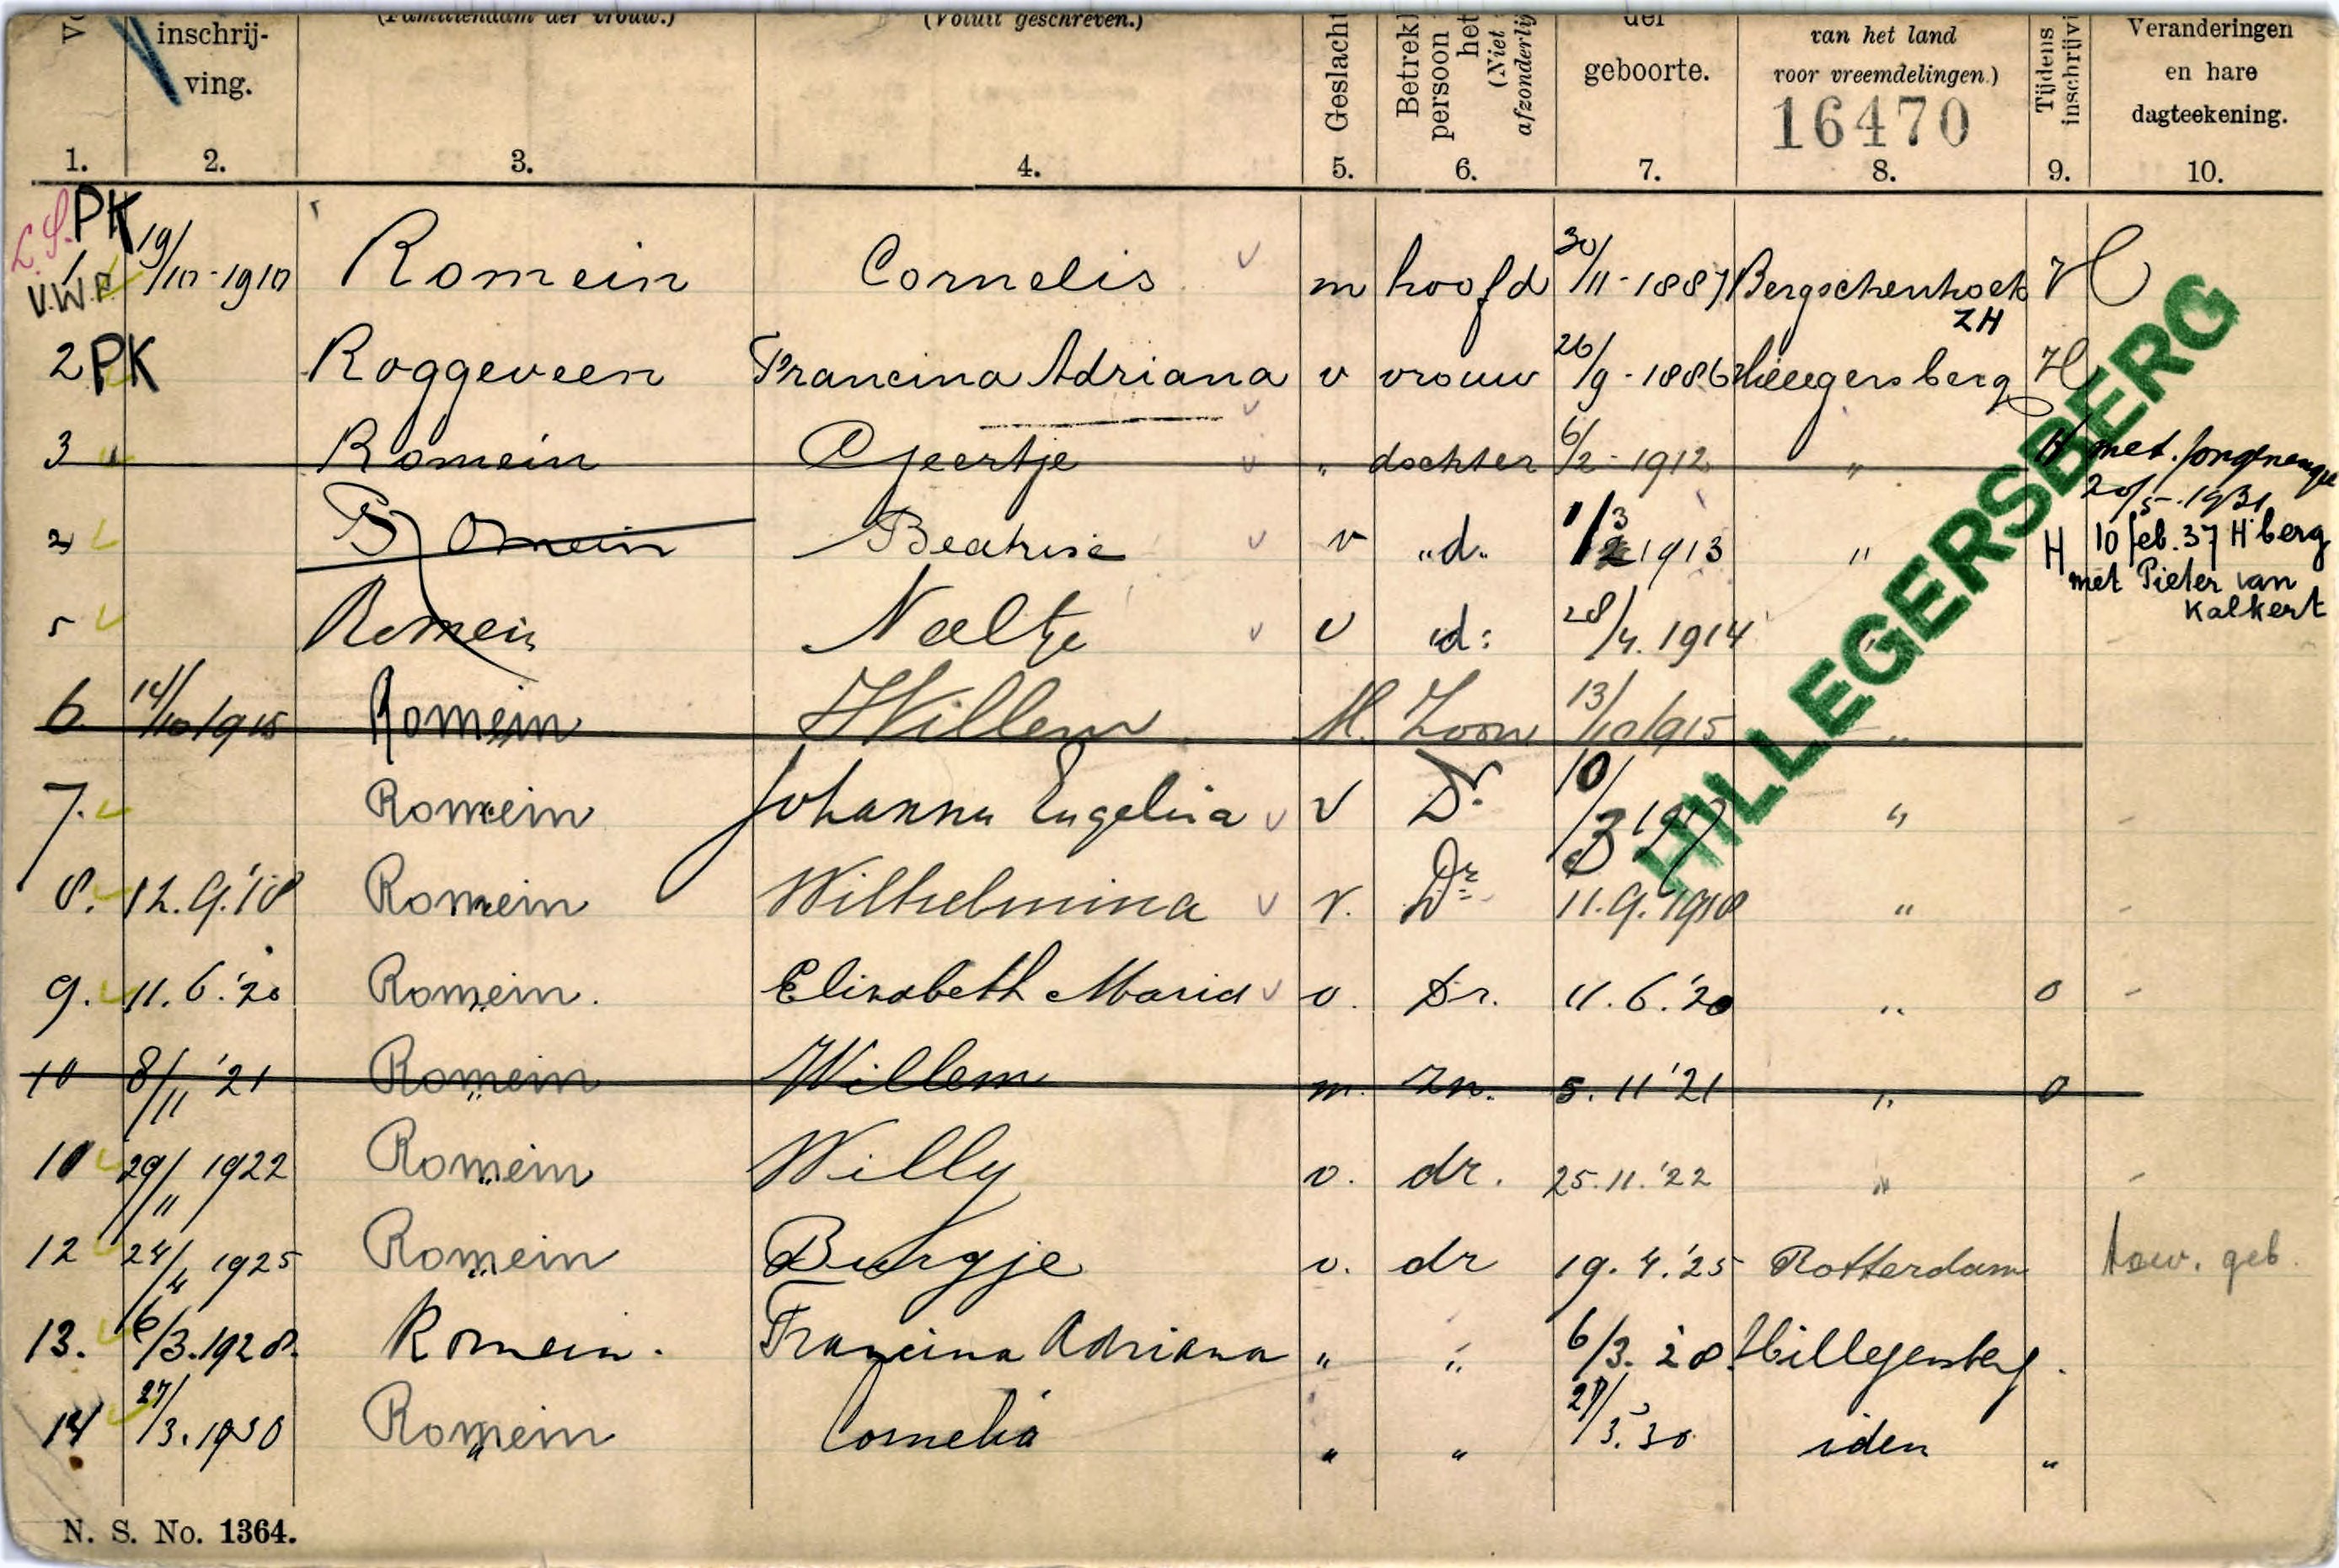 inschrij- (Familienaam der vrouw.) (Voluit geschreven.) Geslacht Betrek persoon het (Niet afzonderlij der van het land Tijdens inschrijvi Veranderingen
ving. geboorte. voor vreemdelingen.) en hare
16470 dagteekening.
1. 2. 3. 4. 5. 6. 7. 8. 9. 10.
PK
1 19/10-1910 Romein Cornelis m hoofd 30/11-1887 Bergschenhoek H
V.W.P. ZH
2 PK Roggeveen Francina Adriana v vrouw 26/9-1886 Hillegersberg H
3 " Romein Geertje " dochter 6/2-1912 " H met
20/5-1931
Romein Beatrise v "d." 1/3 1913 " H 10 feb. 37 H'berg
met Pieter van
Kalkert
5 Romein Neeltje v "d: 28/4. 1914 "
6 14/10 1915 Romein Willem M. Zoon 13/10 1915 "
7. Romein Johanna Engelina v Dr. 10/3 1917 " -
8. 12.9.'18 Romein Wilhelmina v. Dr 11.9.1918 " -
9. 11.6.'20 Romein. Elizabeth Maria v. Dr. 11.6.'20 " 0 -
10 8/11 '21 Romein Willem m. Zn. 5.11'21 " 0
29/11 1922 Romein Willy v. dr. 25.11.'22 " -
12 24/4 1925 Romein Burgje v. dr 19.4.'25 Rotterdam geb.
13. 6/3.1928. Romein. Francina Adriana " " 6/3.'28. Hillegersberg.
14 27/3.1930 Romein Cornelia " " 27/3.30 idem "
HILLEGERSBERG
N. S. No. 1364.